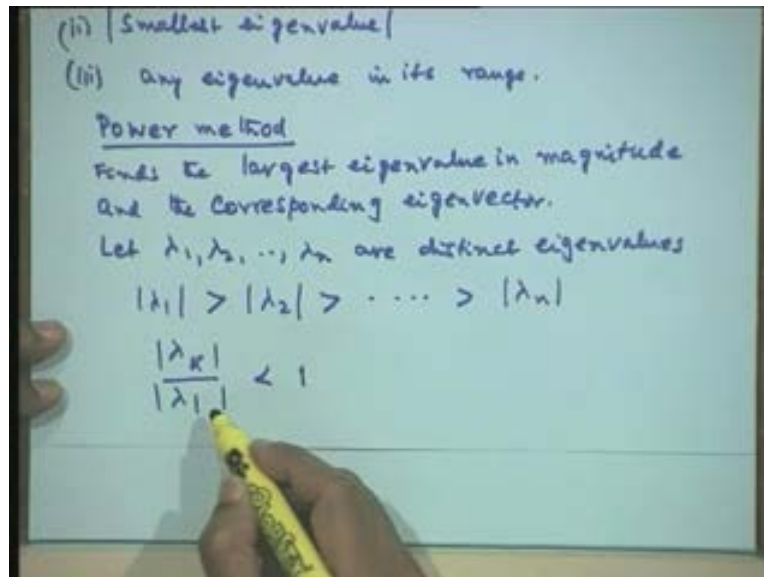 (ii) |Smallest eigenvalue|
(iii) any eigenvalue in its range.
Power method
Finds the largest eigenvalue in magnitude
and the corresponding eigenvector.
Let λ₁, λ₂, .., λₙ are distinct eigenvalues
|λ₁| > |λ₂| > . .... > |λₙ|
|λ_K| / |λ₁| < 1